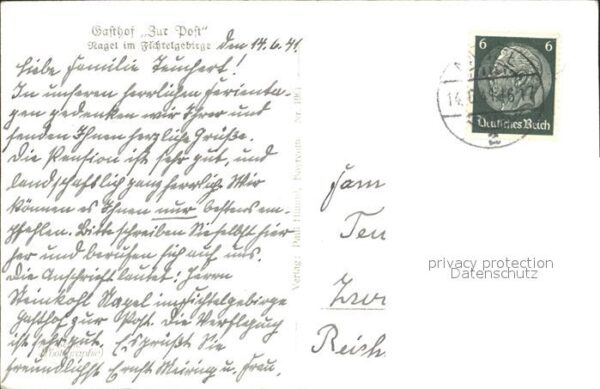 Gasthof „Zur Post"
Nagel im Fichtelgebirge
den 14.6.41
Liebe Familie Teuchert!
In unseren herrlichen Ferienta-
gen gedenken wir Ihrer und
senden Ihnen herzliche Grüße.
Die Pension ist sehr gut, und
landschaftlich ganz herrlich. Wir
können es Ihnen nur bestens em-
pfehlen. Bitte schreiben Sie selbst hier
her und berufen sich auf uns.
Die Anschrift lautet: Herrn
Steinkohl Nagel im Fichtelgebirge
Gasthof zur Post. Die Verpflegung
ist sehr gut. Es grüßt Sie
freundlichst Ernst Meiring u. Frau.
Verlag: Paul Bayreuth Nr.
6 6
Deutsches Reich
14.6.41 16-17
Fam
Teu
Zwi
Reich
privacy protection
Datenschutz